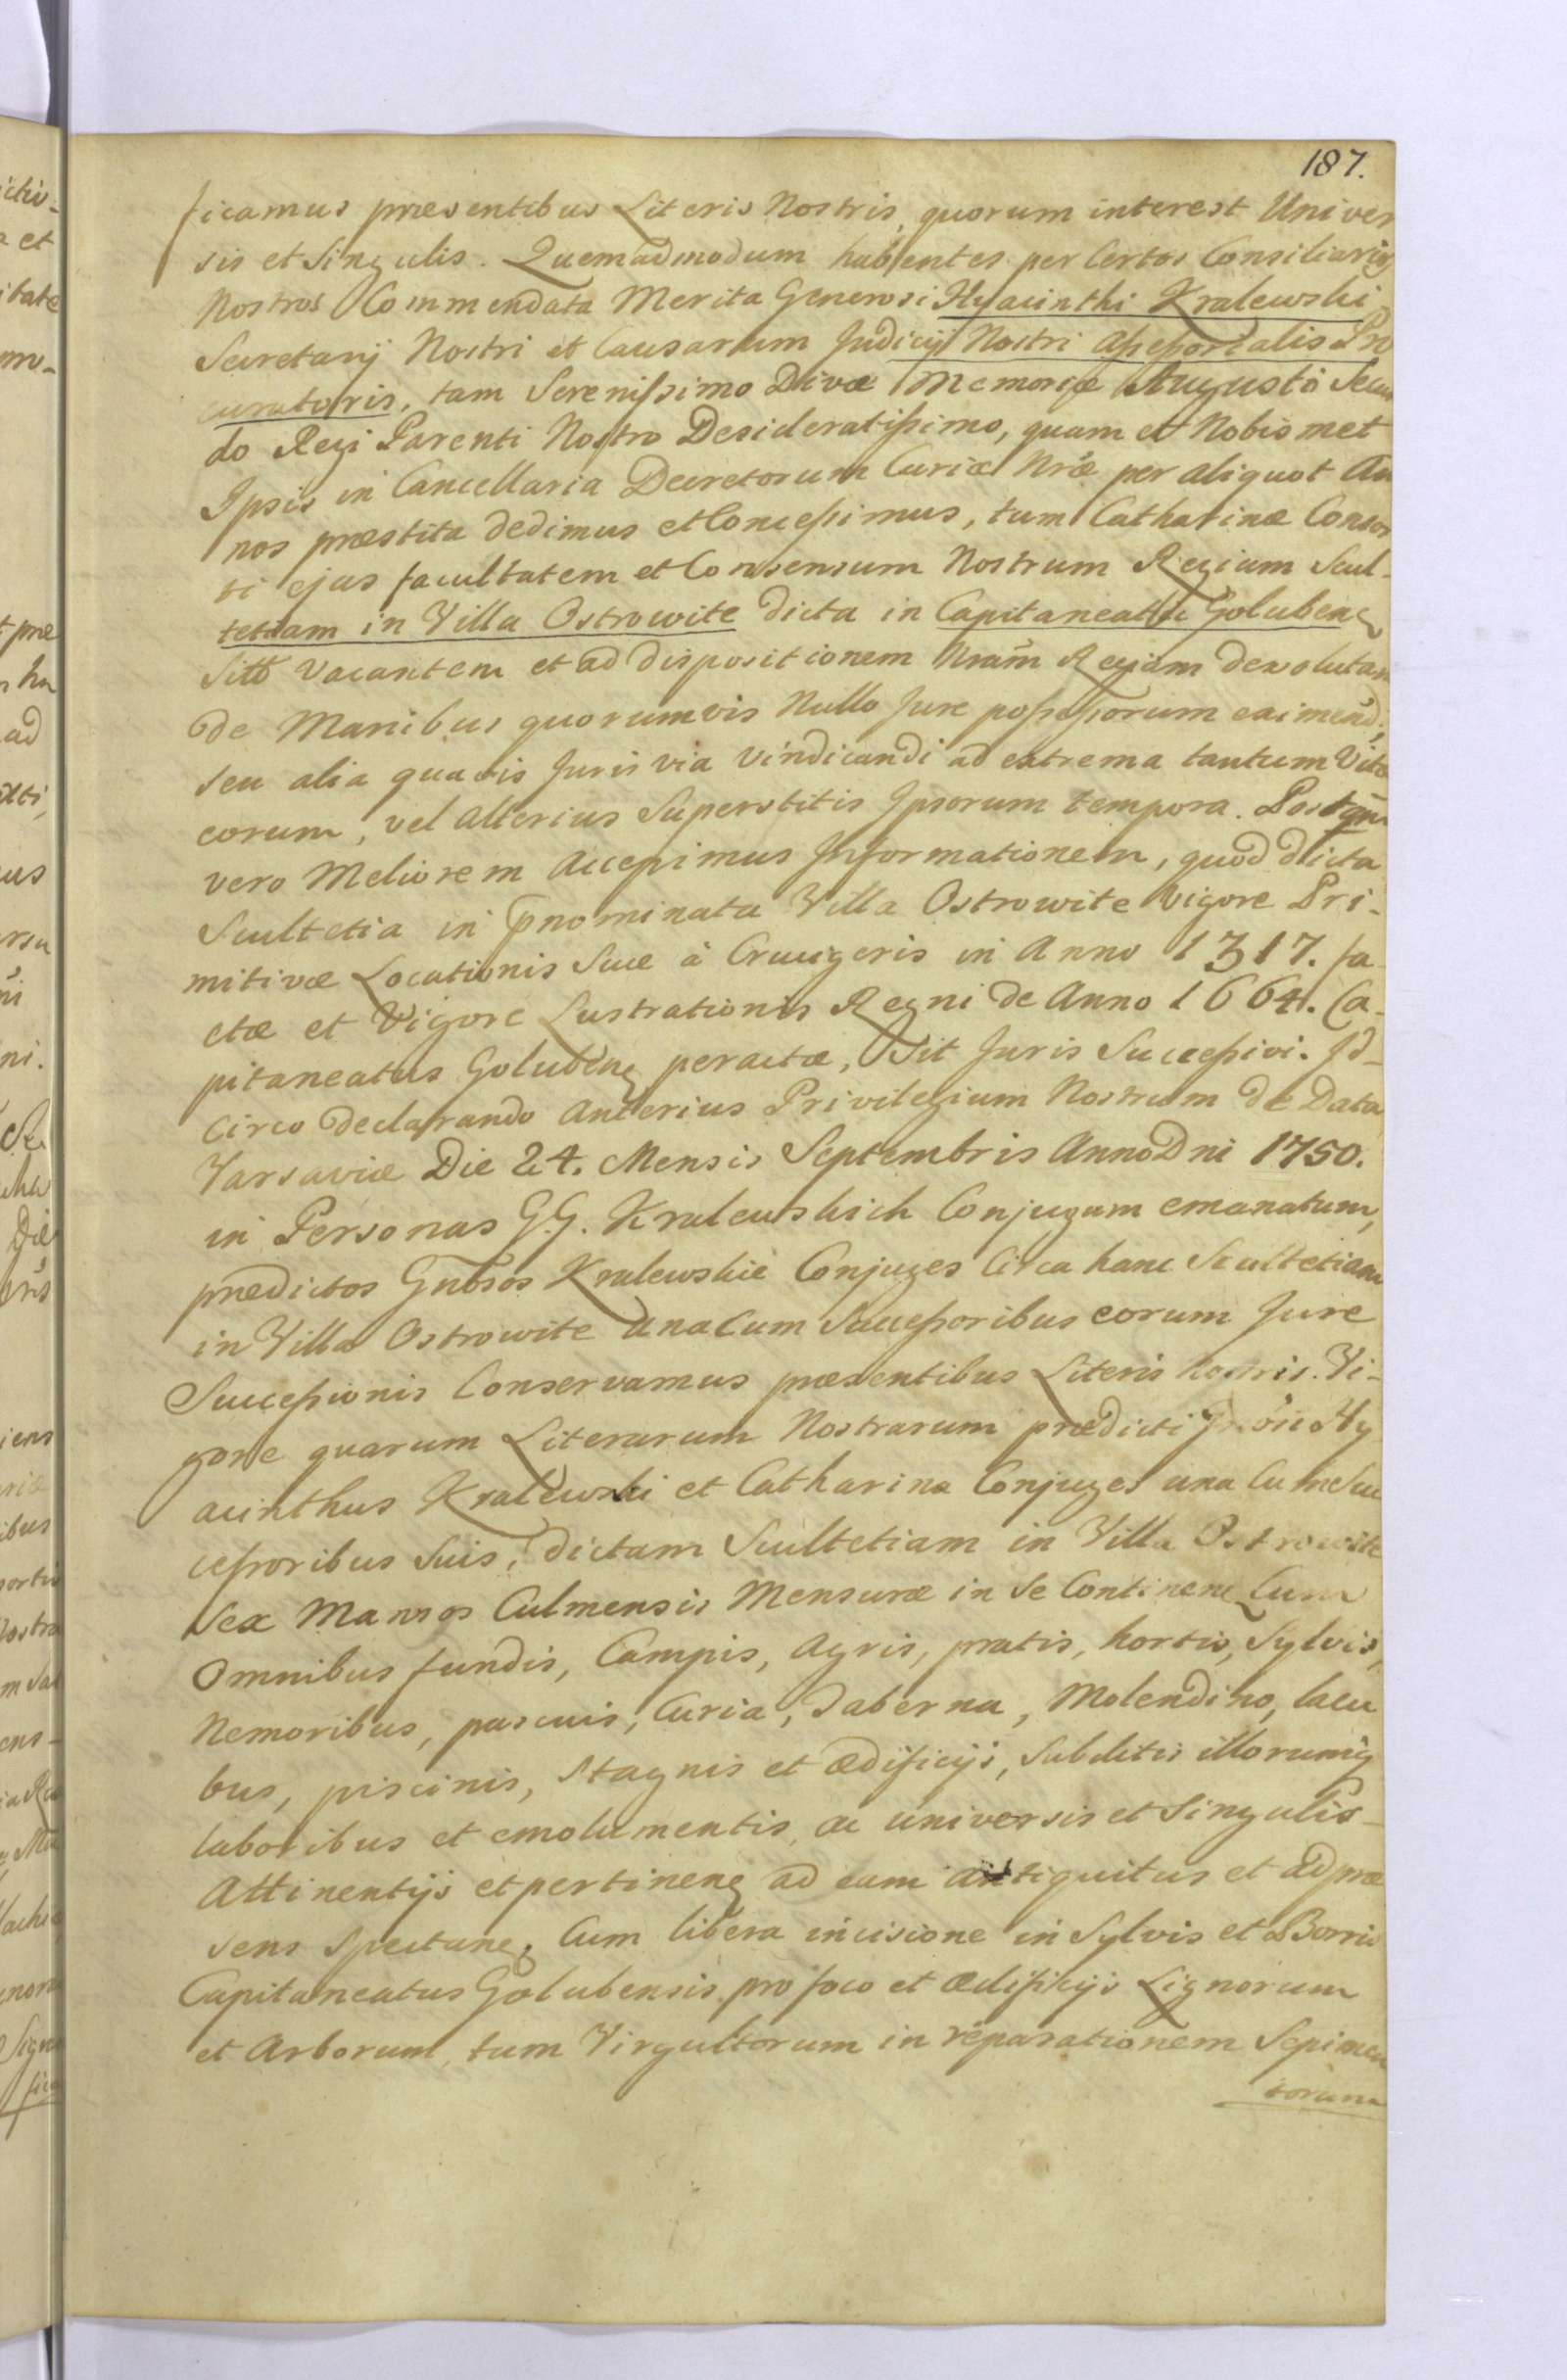 187.
ficamus præsentibus Literis Nostris, quorum interest Univer
sis et Singulis. Quemadmodum habentes per Certos Consiliarios
Nostros Commendata Merita Generosi Hyacinthi Kralewski
Secretarij Nostri et Causarum Judicij Nostri Assessorialis Pro
curatoris, tam Serenissimo Divæ Memoriæ Augusto Secun
do Regi Parenti Nostro Desideratissimo, quam et Nobismet
Ipsis in Cancellaria Decretorum Curiæ Nræ per aliquot An
nos præstita dedimus et Concessimus, tum Catharinæ Consor
ti ejus facultatem et Consensum Nostrum Regium Scul-
tetiam in Villa Ostrowite dicta in Capitaneatu Golubens
Sitt Vacantem et ad dispositionem Nram Regiam devolutam
de Manibus quorumvis Nullo Jure possessorum eximend,
seu alia quavis Juris via Vindicandi ad extrema tantum Vitæ
eorum, vel alterius Superstitis Ipsorum tempora. Postqm
vero Meliorem Accepimus Informationem, quod dicta
Scultetia in pnominata Villa Ostrowite Vigore Pri-
mitivæ Locationis Suæ à Crucigeris in Anno 1317. fa
ctæ et Vigore Lustrationis Regni de Anno 1664. Ca-
pitaneatus Golubens peractæ, Sit Juris Successivi. Id-
circo declarando Anterius Privilegium Nostrum de Data
Varsaviæ Die 24. Mensis Septembris Anno Dni 1750.
in Personas G.G. Kralewskich Conjugum emanatum,
prædictos Gnosos Kralewskie Conjuges Circa hanc Scultetiam
in Villa Ostrowite unacum Successoribus eorum Jure
Successionis Conservamus præsentibus Literis nostris. Vi-
gore quarum Literarum Nostrarum prædicti Gnosi Hy
acinthus Kralewski et Catharina Conjuges una Cum Suc
cessoribus Suis, dictam Scultetiam in Villa Ostrowite
Sex Mansos Culmensis Mensuræ in se Continens Cum
Omnibus fundis, Campis, Agris, pratis, hortis, Sylvis,
Nemoribus, pascuis, Curia, Taberna, Molendino, lacu
bus, piscinis, Stagnis et ædificijs, Subditis illorumq
laboribus et emolumentis, ac universis et Singulis
Attinentijs et pertinens ad eam antiquitus et ad præ
sens Spectans, Cum libera incisione in Sylvis et Borris
Capitaneatus Golubensis pro foco et ædificijs Lignorum
et Arborum, tum Virgultorum in reparationem Sepimen
torum